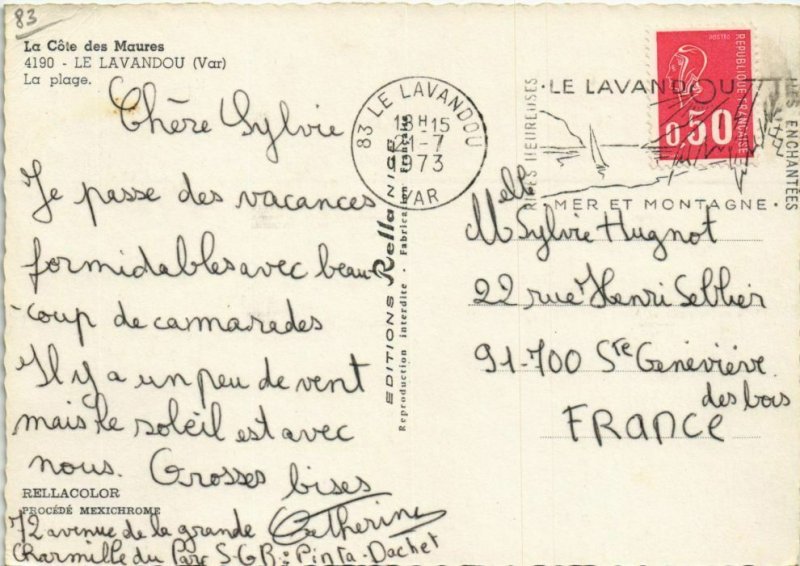 83
La Côte des Maures
4190 - LE LAVANDOU (Var)
La plage.
Chère Sylvie
Je passe des vacances
formidables avec beau-
coup de camarades
Il y a un peu de vent
mais le soleil est avec
nous. Grosses bises
Catherine
72 avenue de la grande
Charmille du Parc S-G-B: Pinta-Dachet
RELLACOLOR
PROCÉDÉ MEXICHROME
EDITIONS Rella NICE
Reproduction interdite - Fabrication Française
83 LE LAVANDOU
18H15
1-7
1973
VAR
RIVES HEUREUSES
LE LAVANDOU
ILES ENCHANTÉES
MER ET MONTAGNE
POSTES
REPUBLIQUE FRANÇAISE
0,50
Melle Sylvie Hugnot
22 rue Henri Sellier
91-700 Ste Geneviève
des bois
FRANCE